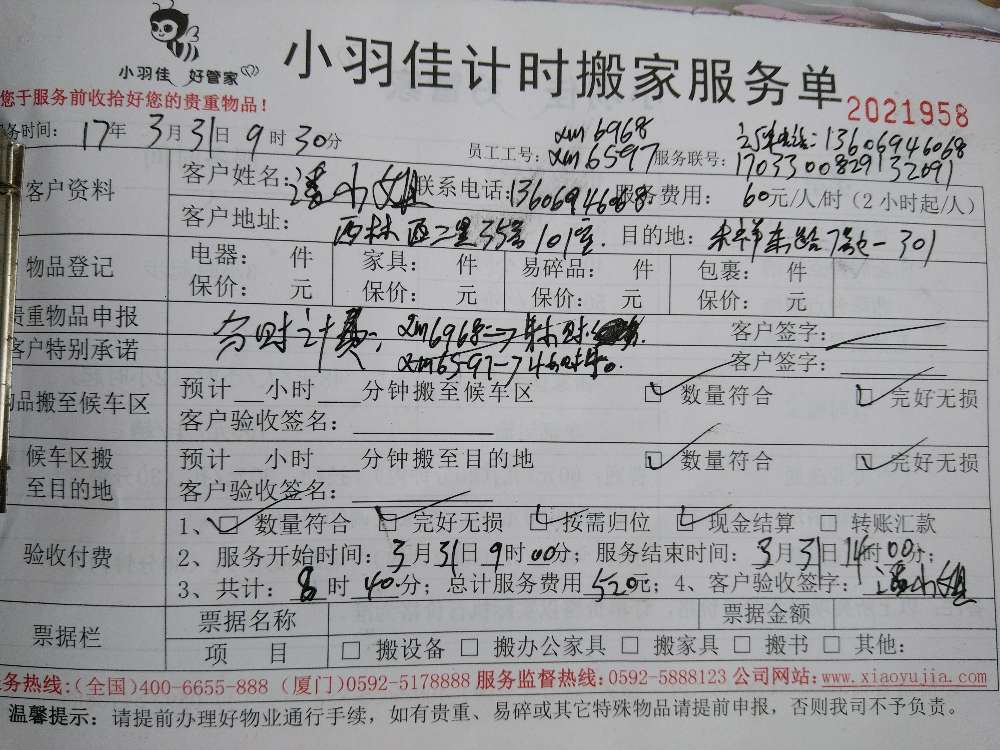 小羽佳 好管家
小羽佳计时搬家服务单
2021958
您于服务前收拾好您的贵重物品！
务时间：17年3月31日9时30分
员工工号：xm6968 xm6597
服务联号：
13606946068
1703300829132691
客户资料
客户姓名： 小姐 联系电话：13606946068 服务费用：60元/人/时（2小时起/人）
客户地址：西林西二里35号101室. 目的地： 301
物品登记
电器： 件 家具： 件 易碎品： 件 包裹： 件
保价： 元 保价： 元 保价： 元 保价： 元
贵重物品申报
客户签字：
客户特别承诺
客户签字：
计费，xm6968
xm6597
物品搬至候车区
预计 小时 分钟搬至候车区 数量符合 完好无损
客户验收签名：
候车区搬
至目的地
预计 小时 分钟搬至目的地 数量符合 完好无损
客户验收签名：
验收付费
1、 数量符合 完好无损 按需归位 现金结算 转账汇款
2、服务开始时间：3月31日9时00分；服务结束时间：3月31日14时00分；
3、共计：8时40分；总计服务费用520元；4、客户验收签字： 小姐
票据栏
票据名称 票据金额
项 目 搬设备 搬办公家具 搬家具 搬书 其他：
务热线：(全国)400-6655-888 (厦门)0592-5178888 服务监督热线：0592-5888123 公司网站：www.xiaoyujia.com
温馨提示：请提前办理好物业通行手续，如有贵重、易碎或其它特殊物品请提前申报，否则我司不予负责。